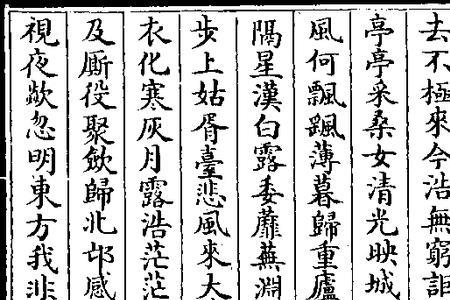 去不極來今浩無窮詎
亭亭采桑女清光映城
風何飄颻薄暮歸重廬
隔星漢白露委蘼蕪淵
步上姑胥臺悲風來大
衣化寒灰月露浩茫茫
及廝役聚斂歸北邙感
視夜歘忽明東方我非